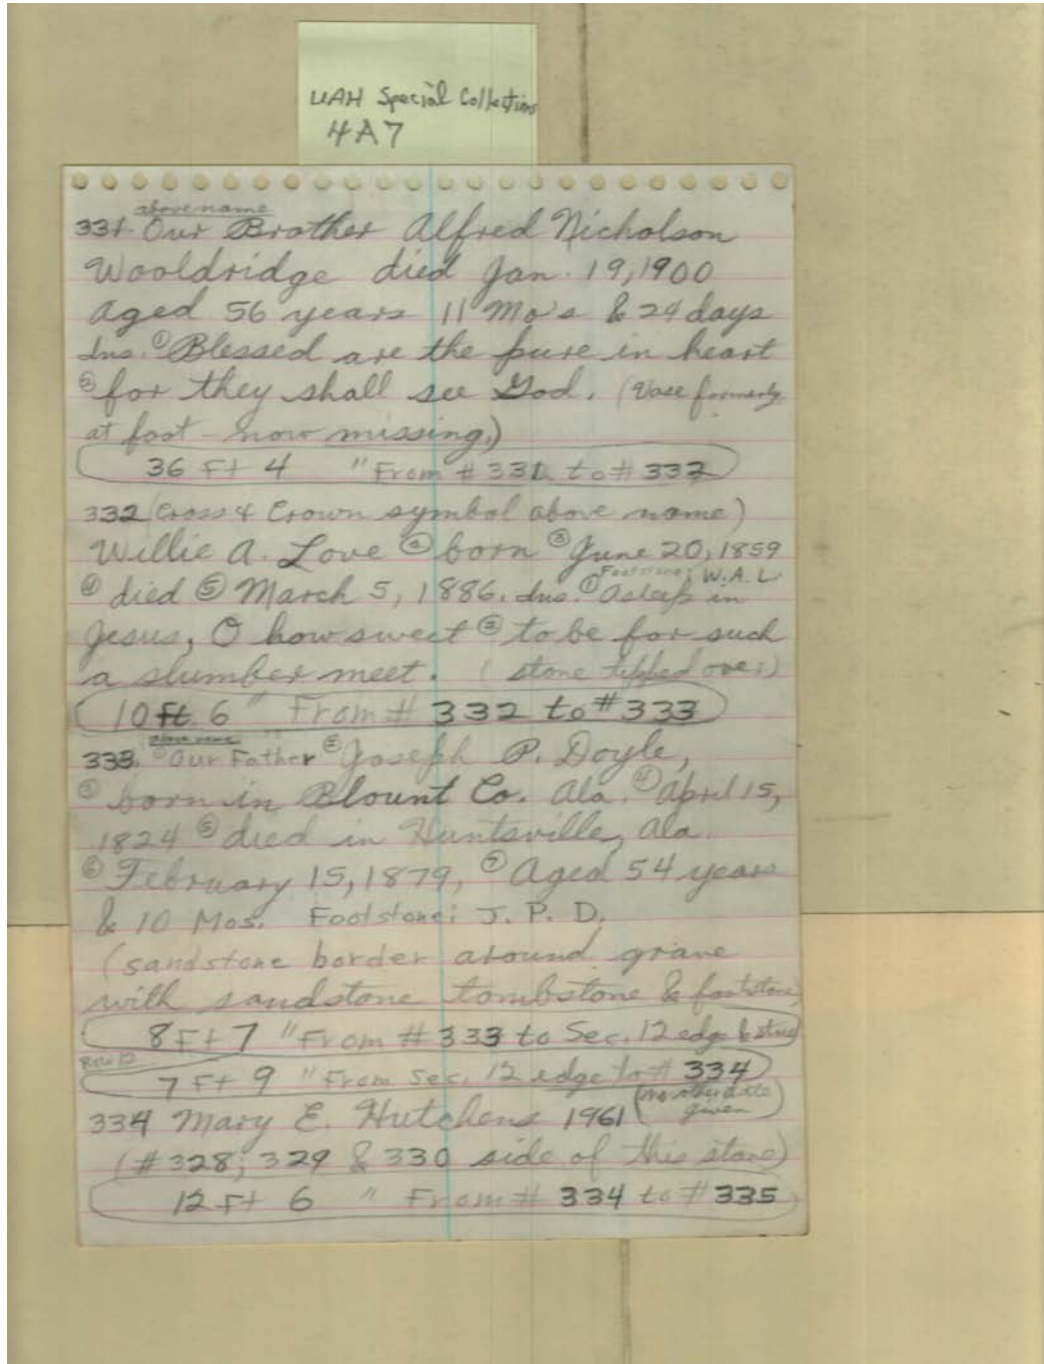 UAH Special Collections
4A7
above name
331 Our Brother Alfred Nicholson
Wooldridge died Jan. 19, 1900
aged 56 years 11 Mo's & 24 days
Ins. ① Blessed are the pure in heart
② for they shall see God. (Vase formerly
at foot - now missing.)
36 Ft 4 " From # 331 to # 332
332 (Cross & Crown symbol above name)
Willie A. Love ② born ③ June 20, 1859
Footstone: W.A.L
④ died ⑤ March 5, 1886. Ins. ① Asleep in
Jesus, O how sweet ② to be for such
a slumber meet. (stone tipped over)
10 ft. 6 " From # 332 to # 333
above name
333. ① Our Father ② Joseph P. Doyle,
③ born in Blount Co. Ala. ④ April 15,
1824 ⑤ died in Huntsville, Ala.
⑥ February 15, 1879, ⑦ Aged 54 years
& 10 Mos. Footstone: J. P. D.
(sandstone border around grave
with sandstone tombstone & footstone)
8 Ft 7 " From # 333 to Sec. 12 edge &
Row 12
7 Ft 9 " From Sec. 12 edge to # 334
334 Mary E. Hutchens 1961 (no other date
given)
(#328; 329 & 330 side of this stone)
12 Ft 6 " From # 334 to # 335